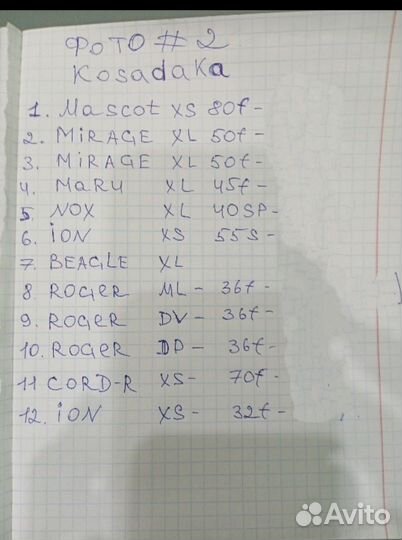 ФОТО # 2
Kosadaka
1. Mascot XS 80f-
2. MiRAGE XL 50f-
3. MiRAGE XL 50f-
4. MARU XL 45f-
5. NOX XL 40SP-
6. iON XS 55S-
7. BEAGLE XL
8. ROGER ML- 36f-
9. ROGER DV- 36f-
10. ROGER DD- 36f-
11 CORD-R XS- 70f-
12. iON XS- 32f-
Avito